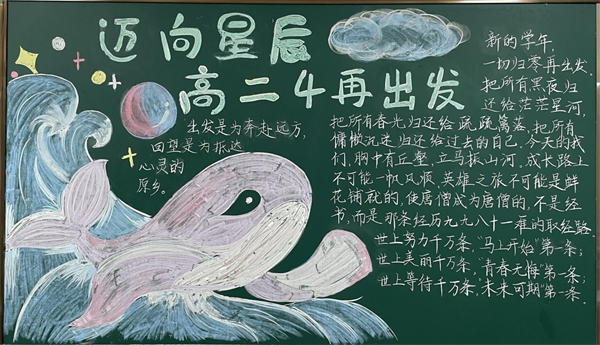 迈向星辰
高二4再出发
出发是为奔赴远方,
回望是为抵达
心灵的
原乡。
新的学年,
一切归零再出发,
把所有黑夜归
还给茫茫星河,
把所有春光归还给疏疏篱落,把所有
慵懒沉迷归还给过去的自己.今天的我
们,胸中有丘壑,立马振山河,成长路上
不可能一帆风顺,英雄之旅不可能是鲜
花铺就的,使唐僧成为唐僧的,不是经
书,而是那条经历九九八十一难的取经路.
世上努力千万条,"马上开始"第一条;
世上美丽千万条,"青春无悔"第一条;
世上等待千万条,"未来可期"第一条.